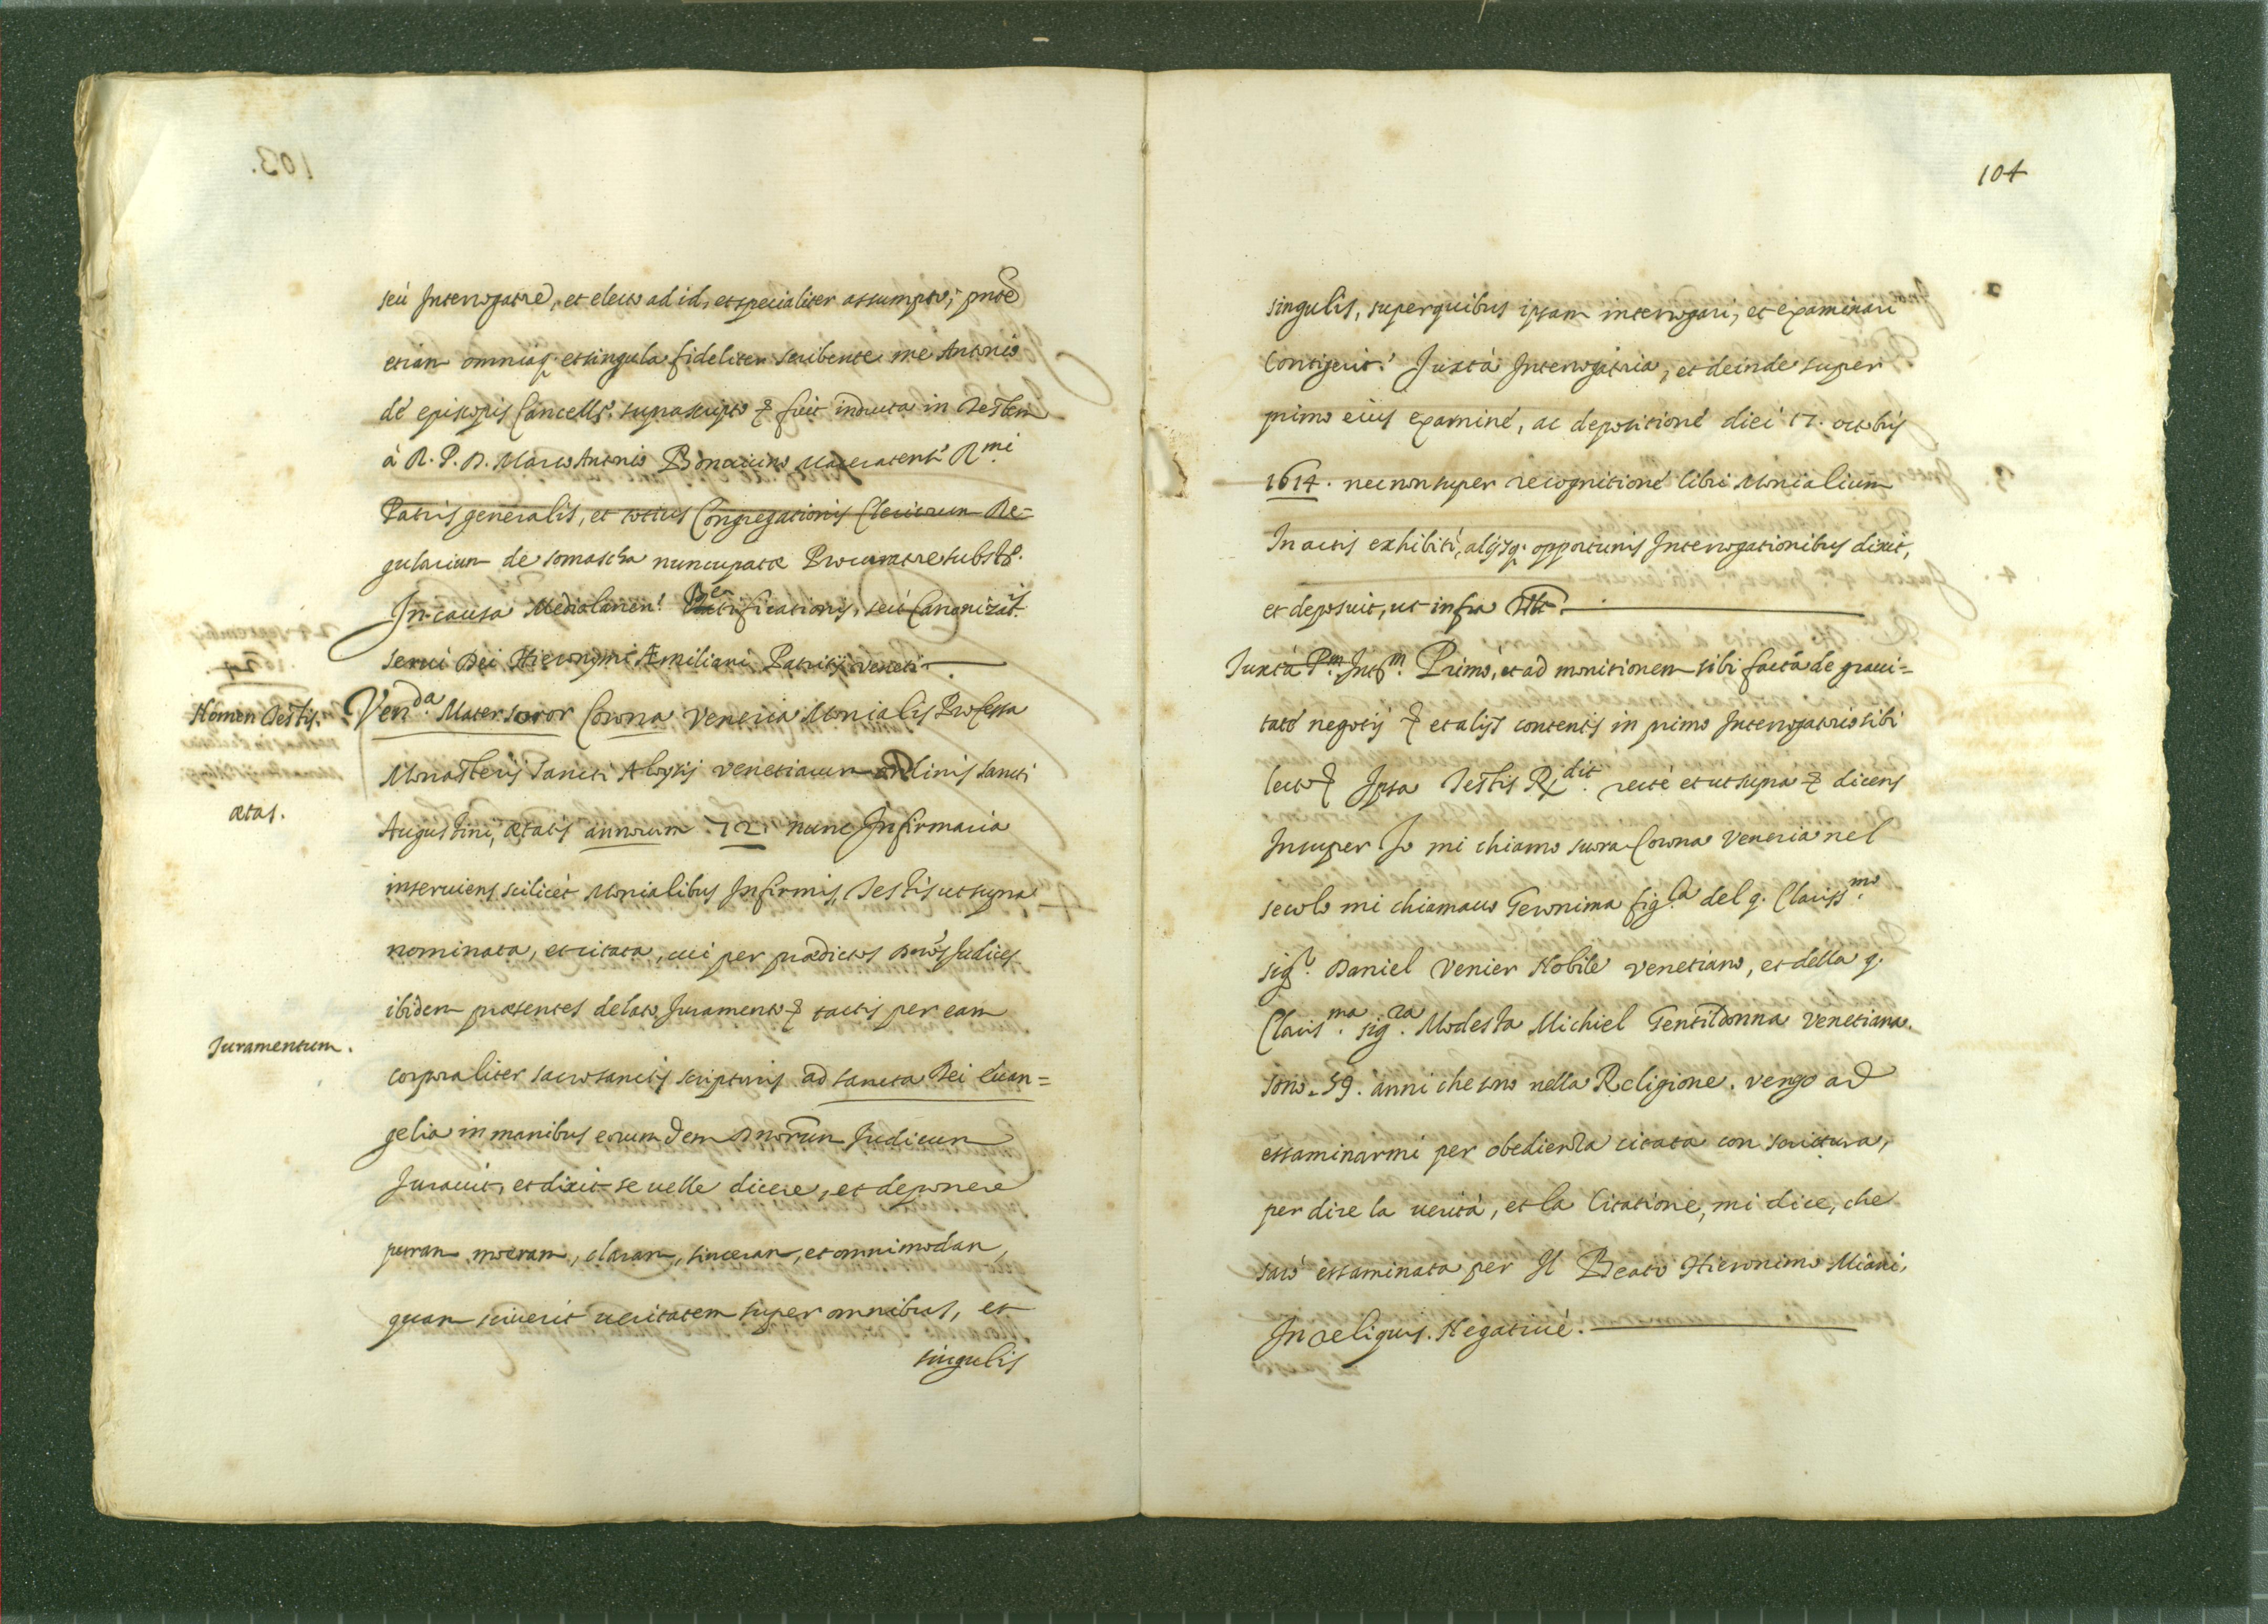 seù Interrogatrè, et electo ad id, et specialiter assumpto, pnte
etiàm omniaq. et singula fideliter scribente me Antonio
de episcopis Cancellr. suprascripto & fuit inducta in Testem
à R. P. D. Marco Antonio Maceratens. Rmi
Patris generalis, et totius Congregationis Clericorum Re=
gularium de somascha nuncupatæ Procuratre substo.
In causa Mediolanen: Beatificationis, seù Canonizat.s
serui Dei Hieronymi Æmiliani Patritij Veneti.
Nomen Testis. Venda. Mater soror Corona Veneria Monialis Professa
Monasterij Sancti Aloysij Venetiarum ordinis sancti
ætas.
Augustini, ætatis annorum 72. nunc Infirmaria
inseruiens scilicèt Monialibus Infirmis, Testis ut supra
nominata, et citata, cui per prædictos Dnos Judices
ibidem præsentes delato Juramento & tactis per eam
Juramentum.
corporaliter sacrosanctis scripturis ad sancta Dei Euan=
gelia in manibus eorumdem Dnorum Judicum
Jurauit, et dixit se uelle dicere, et deponere
puram, meram, claram, sinceram, et omnimodam,
quam sciuerit ueritatem super omnibus, et
singulis
104
singulis, super quibus ipsam interrogari, et examinari
Contigerit. Juxta Interrogatria, et deinde super
primo eius examine, ac depositione diei 17. octobris
1614. necnon super recognitione libri Monialium
In actis exhibiti, alijsq. opportunis Interrogationibus dixit,
et deposuit, ut infra
Juxtà Pm. Intm. Primò, et ad monitionem sibi factã de graui=
tatè negotij & et alijs contentis in primo Interrogatrio sibi
lecto & Ipsa Testis Rdit. rectè et ut supra & dicens
Insuper Io mi chiamo suora Corona Veneria nel
secolo mi chiamauo Geronima figla. del q. Clarissmo.
sigr. Daniel Venier Nobile Venetiano, et della q.
Clarisma. sigra. Modesta Michiel Gentildonna Venetiana.
sono 59. anni che sono nella Religione. vengo ad
essaminarmi per obedienza citata con scrittura,
per dire la uerità, et la Citatione, mi dice, che
sarò essaminata per Il Beato Hieronimo Miani.
In reliquis. Negatiuè.